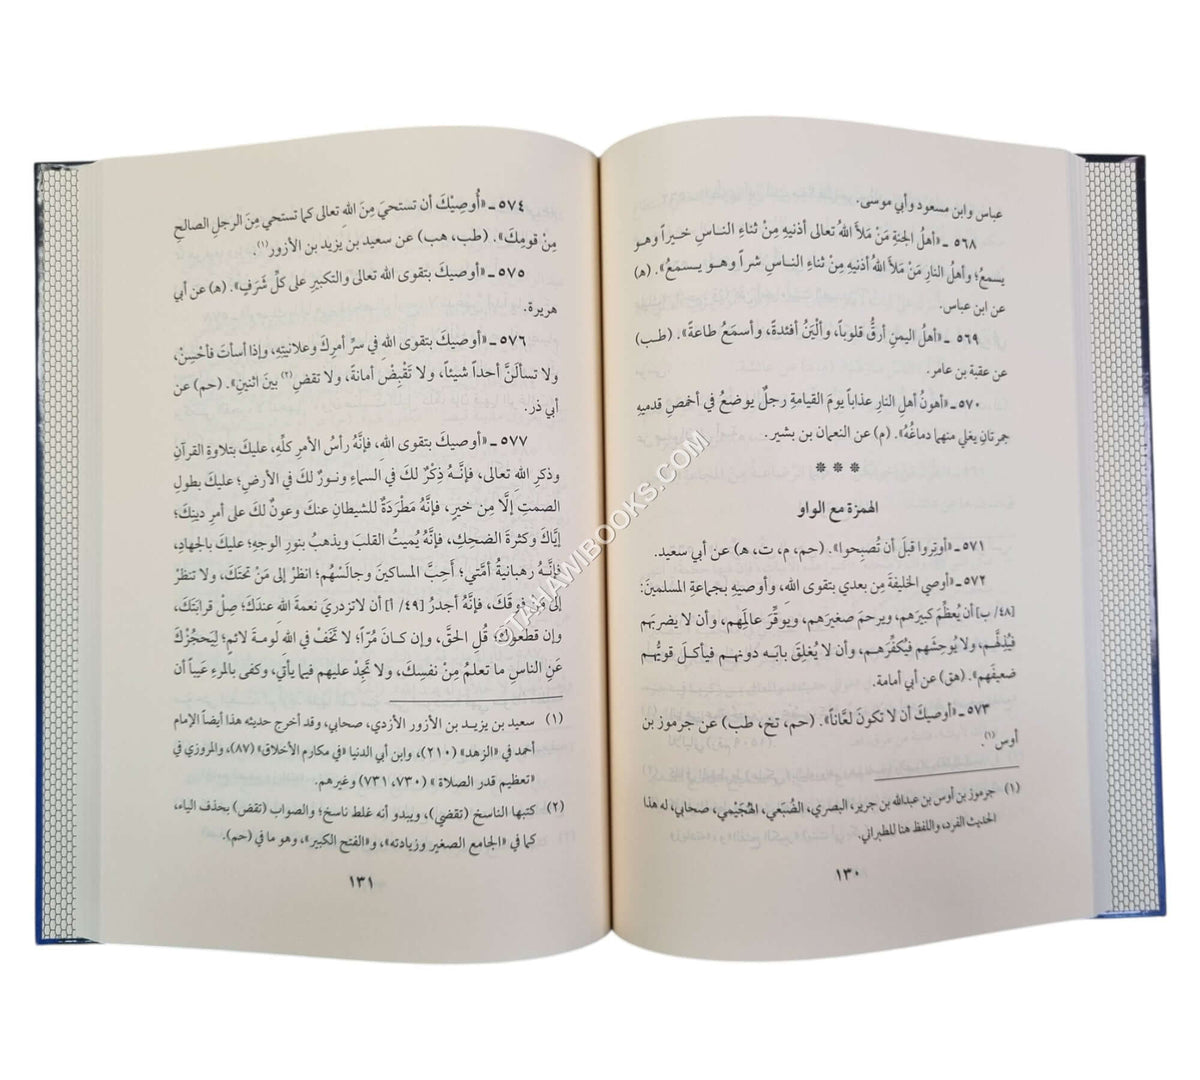 عباس وابن مسعود وأبي موسى.
٥٦٨ ـ «أهلُ الجنةِ مَنْ مَلأَ اللهُ تعالى أذنيهِ مِنْ ثناءِ الناسِ خيراً وهو
يسمعُ؛ وأهلُ النارِ مَنْ مَلأَ اللهُ أذنيهِ مِنْ ثناءِ الناسِ شراً وهو يسمعُ». (ه)
عن ابن عباس.
٥٦٩ ـ «أهلُ اليمنِ أرقُّ قلوباً، وألْيَنُ أفئدةً، وأسمَعُ طاعةً». (طب)
عن عقبة بن عامر.
٥٧٠ ـ «أهونُ أهلِ النارِ عذاباً يومَ القيامةِ رجلٌ يوضعُ في أخمصِ قدميهِ
جمرتانِ يغلي منهما دماغُهُ». (م) عن النعمان بن بشير.
❊ ❊ ❊
الهمزة مع الواو
٥٧١ ـ «أوتِروا قبلَ أن تُصبِحوا». (حم، م، ت، ه) عن أبي سعيد.
٥٧٢ ـ «أوصي الخليفةَ مِن بعدي بتقوى اللهِ، وأوصيهِ بجماعةِ المسلمينَ:
[٤٨/ ب] أن يُعظِّمَ كبيرَهم، ويرحمَ صغيرَهم، ويوقِّرَ عالِمَهم، وأن لا يضربَهم
فيُذِلَّهم، ولا يُوحِشَهم فيُكفِّرَهم، وأن لا يُغلِقَ بابَه دونَهم فيأكلَ قويُّهم
ضعيفَهم». (هق) عن أبي أمامة.
٥٧٣ ـ «أوصيكَ أن لا تكونَ لعَّاناً». (حم، تخ، طب) عن جرموز بن
أوس(١).
(١) جرموز بن أوس بن عبدالله بن جرير، البصري، الضُبَعي، الهُجَيْمي، صحابي، له هذا
الحديث الفرد، واللفظ هنا للطبراني.
١٣٠
٥٧٤ ـ «أُوصِيْكَ أن تستحيَ مِنَ اللهِ تعالى كما تستحي مِنَ الرجلِ الصالحِ
مِنْ قومِكَ». (طب، هب) عن سعيد بن يزيد بن الأزور(١).
٥٧٥ ـ «أوصيكَ بتقوى اللهِ تعالى والتكبيرِ على كلِّ شَرَفٍ». (ه) عن أبي
هريرة.
٥٧٦ ـ «أوصيكَ بتقوى اللهِ في سرِّ أمرِكَ وعلانيتِهِ، وإذا أسأتَ فأحْسِنْ،
ولا تسألَنَّ أحداً شيئاً، ولا تَقْبِضْ أمانةً، ولا تقضِ(٢) بينَ اثنينِ». (حم) عن
أبي ذر.
٥٧٧ ـ «أوصيكَ بتقوى اللهِ، فإنَّهُ رأسُ الأمرِ كلِّهِ، عليكَ بتلاوةِ القرآنِ
وذكرِ اللهِ تعالى، فإنَّهُ ذِكْرٌ لكَ في السماءِ ونورٌ لكَ في الأرضِ؛ عليكَ بطولِ
الصمتِ إلَّا مِن خيرٍ، فإنَّهُ مَطْرَدَةٌ للشيطانِ عنكَ وعونٌ لكَ على أمرِ دينِكَ؛
إيَّاكَ وكثرةَ الضحِكِ، فإنَّهُ يُميتُ القلبَ ويذهبُ بنورِ الوجهِ؛ عليكَ بالجهادِ،
فإنَّهُ رهبانيةُ أمَّتي؛ أحِبَّ المساكينَ وجالِسْهُم؛ انظرْ إلى مَنْ تحتَكَ، ولا تنظرْ
إلى مَن فوقَكَ، فإنَّهُ أجدرُ [٤٩/ أ] أن لا تزدريَ نعمةَ اللهِ عندَكَ؛ صِلْ قرابتَكَ،
وإن قطعوكَ؛ قُلِ الحقَّ، وإن كانَ مُرّاً؛ لا تخَفْ في اللهِ لومةَ لائمٍ؛ لِيَحجُزْكَ
عنِ الناسِ ما تعلمُ مِنْ نفسِكَ، ولا تَجِدْ عليهم فيما يأتي، وكفى بالمرءِ عَيباً أن
(١) سعيد بن يزيد بن الأزور الأزدي، صحابي، وقد أخرج حديثه هذا أيضاً الإمام
أحمد في «الزهد» (٢١٠)، وابن أبي الدنيا «في مكارم الأخلاق» (٨٧)، والمروزي في
«تعظيم قدر الصلاة» (٧٣٠، ٧٣١) وغيرهم.
(٢) كتبها الناسخ (تقضي)، ويبدو أنه غلط ناسخ؛ والصواب (تقض) بحذف الياء،
كما في «الجامع الصغير وزيادته»، و«الفتح الكبير»، وهو ما في (حم).
١٣١
TAHAWIBOOKS.COM